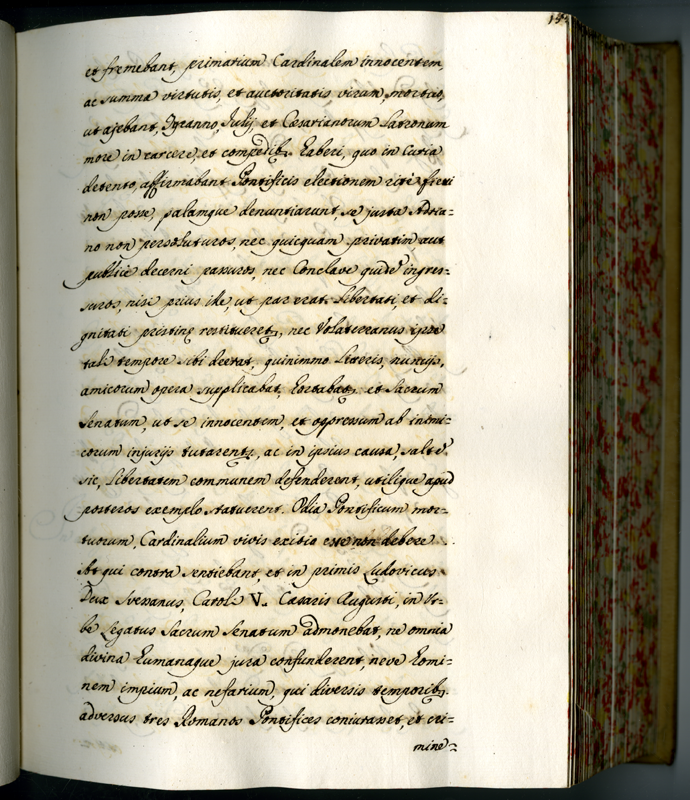 et fremebant, primarium Cardinalem innocentem,
ac summa virtutis, et auctoritatis virum, mortuo,
ut ajebant, Tyranno, Julij, et Cæsarianorum Latronum
more in carcere, et compedib9 haberi, quo in Curia
detento, affirmabant Pontificis electionem ritè fieri
non posse, palamque denuntiarunt, se justa Adria-
no non persoluturos, nec quicquam privatim aut
publicè decerni passuros, nec Conclave quidē ingres-
suros, nisi prius ille, ut par erat, Libertati, et di-
gnitati pristinę restitueret2, nec Volaterranus ipse
tali tempore sibi deerat, quinimmo Literis, nuncijs,
amicorum opera supplicabat, hortabat2 et Sacrum
Senatum, ut se innocentem, et oppressum ab inimi-
corum injurijs tutarent2, ac in ipsius causa, saltē
sic, Libertatem communem defenderent, utilique apud
posteros exemplo statuerent. Odia Pontificum mor-
tuorum, Cardinalium vivis exitio esse non debere.
At qui contra sentiebant, et in primis Ludovicus
Dux Svessanus, Caroli V. Cæsaris Augusti, in Ur-
be Legatus Sacrum Senatum admonebat, ne omnia
divina humanaque jura confunderent, neve homi-
nem impium, ac nefarium, qui diversis temporib9
adversus tres Romanos Pontifices coniurasset, et cri-
mine